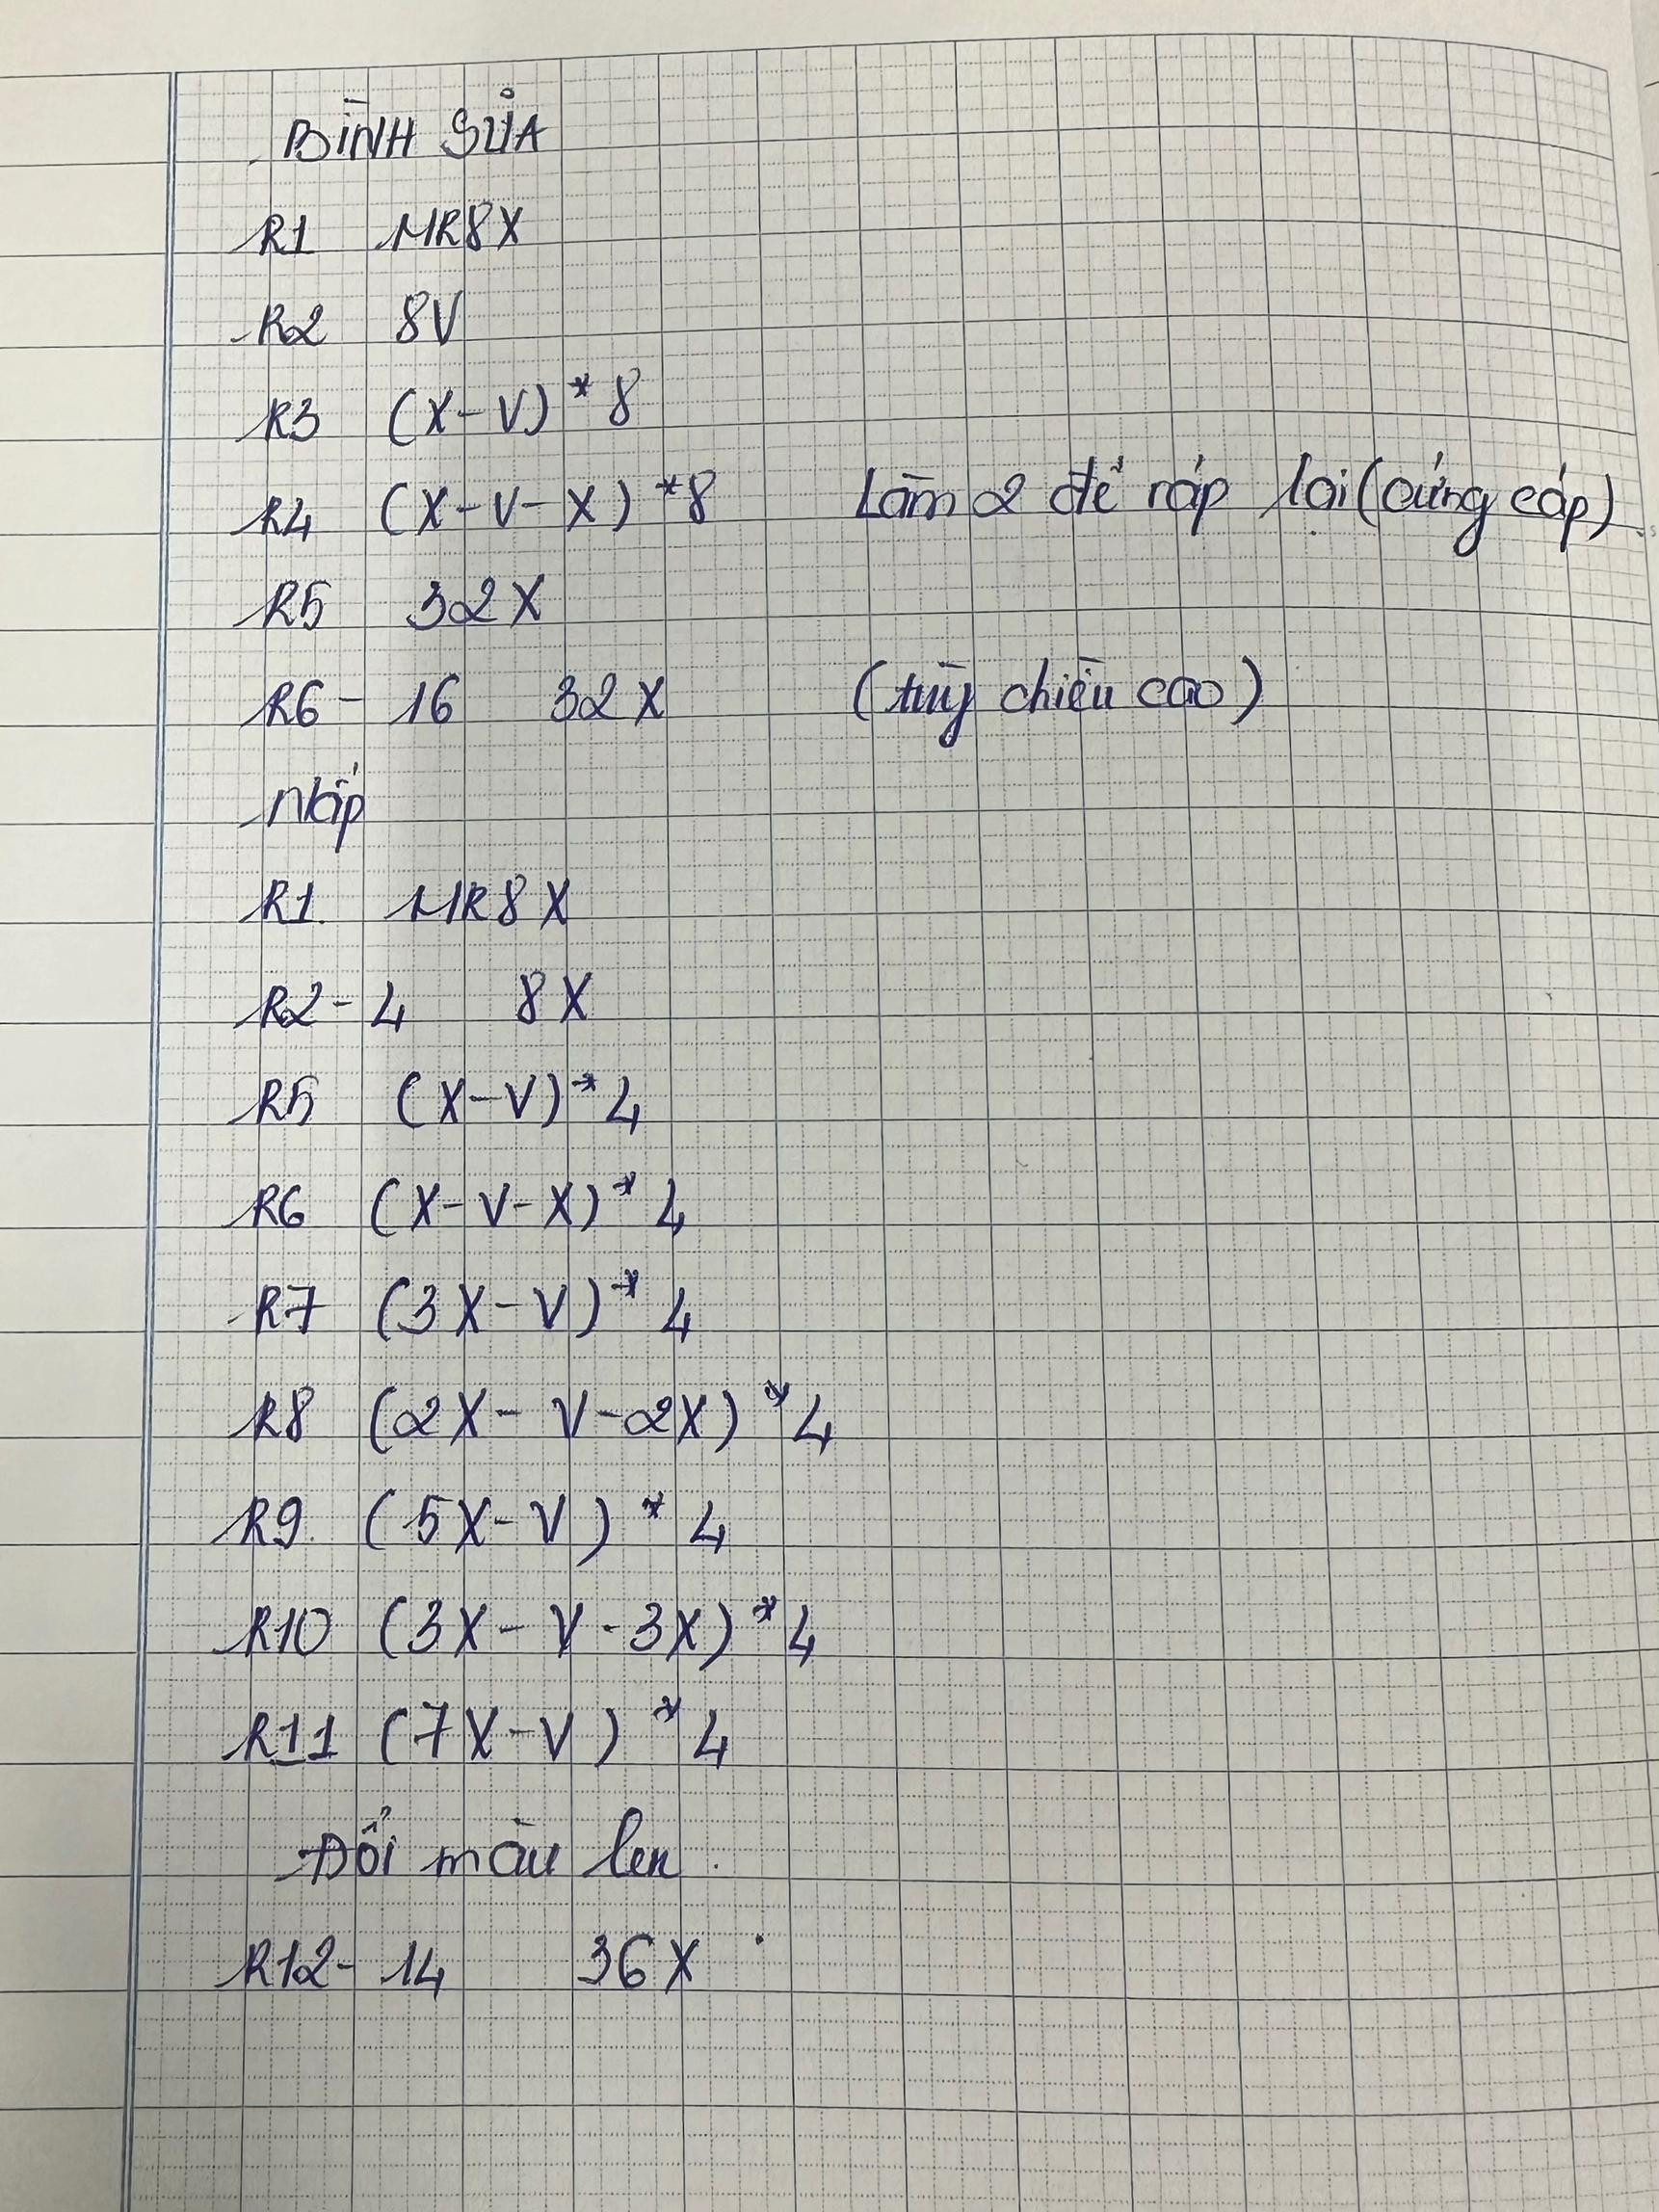 BÌNH SỦA
R1 MR8X
R2 8V
R3 (X-V)*8
R4 (X-V-X)*8 Làm 2 để ráp lại (cứng cáp)
R5 32X
R6-16 32X (tùy chiều cao)
Nắp
R1. MR8X
R2-4 8X
R5 (X-V)*4
R6 (X-V-X)*4
R7 (3X-V)*4
R8 (2X-V-2X)*4
R9. (5X-V)*4
R10 (3X-V-3X)*4
R11 (7X-V)*4
Đổi màu len.
R12-14 36X